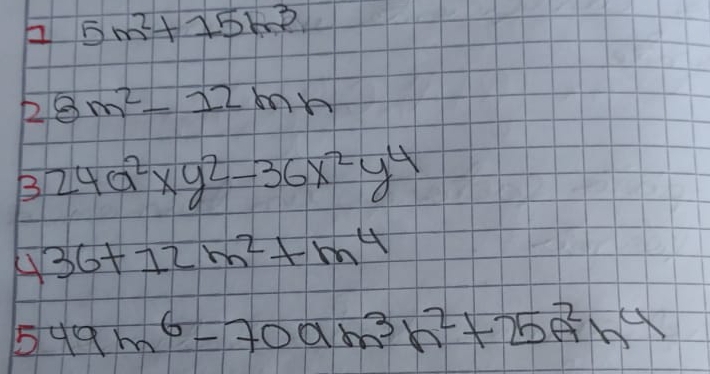 1 5m²+15m³
2 8m²-12mn
3 24a²xy²-36x²y⁴
4 36+12m²+m⁴
5 49m⁶-70am³n²+25a²n⁴